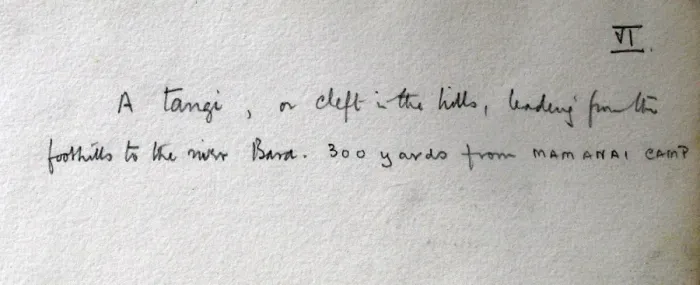 VI.
A tangi, or cleft in the hills, leading from the
foothills to the river Bara. 300 yards from MAMANAI CAMP